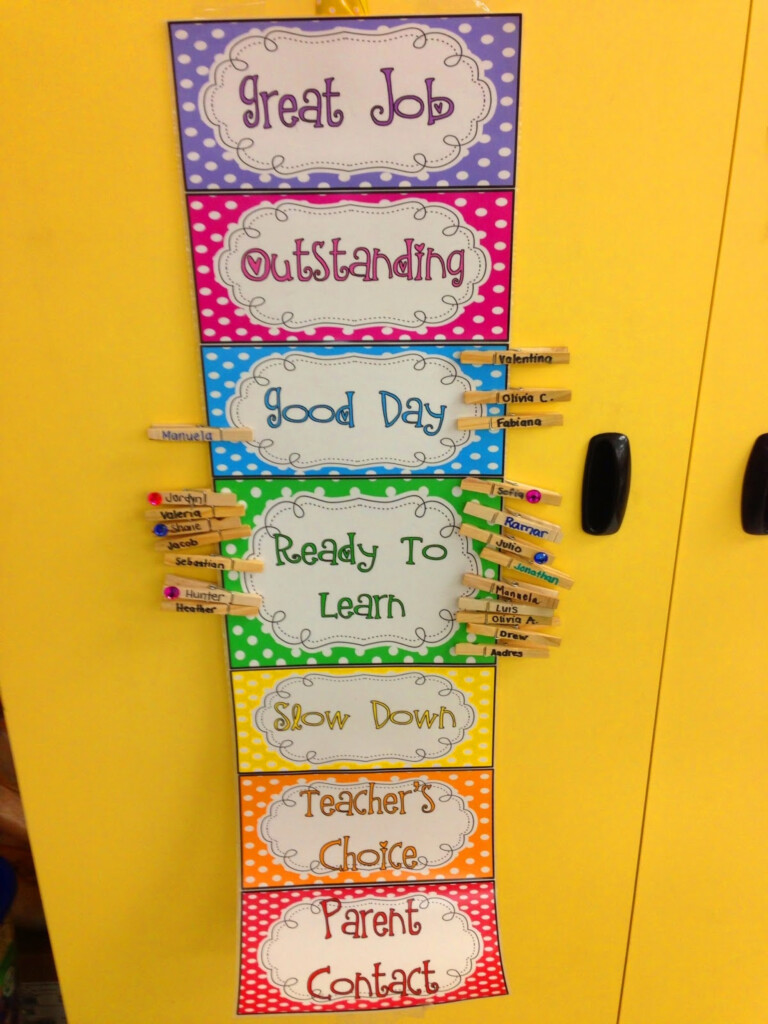 great Job
Outstanding
Valentina
good Day
Olivia C.
Fabiana
Manuela
Sofia
Jordyn
Valeria
Ramar
Shaie
Julio
Jacob
Ready To
Jonathan
Sebastian
Learn
Manuela
Hunter
Luis
Heather
Olivia A.
Drew
Andres
Slow Down
Teacher's
Choice
Parent
Contact